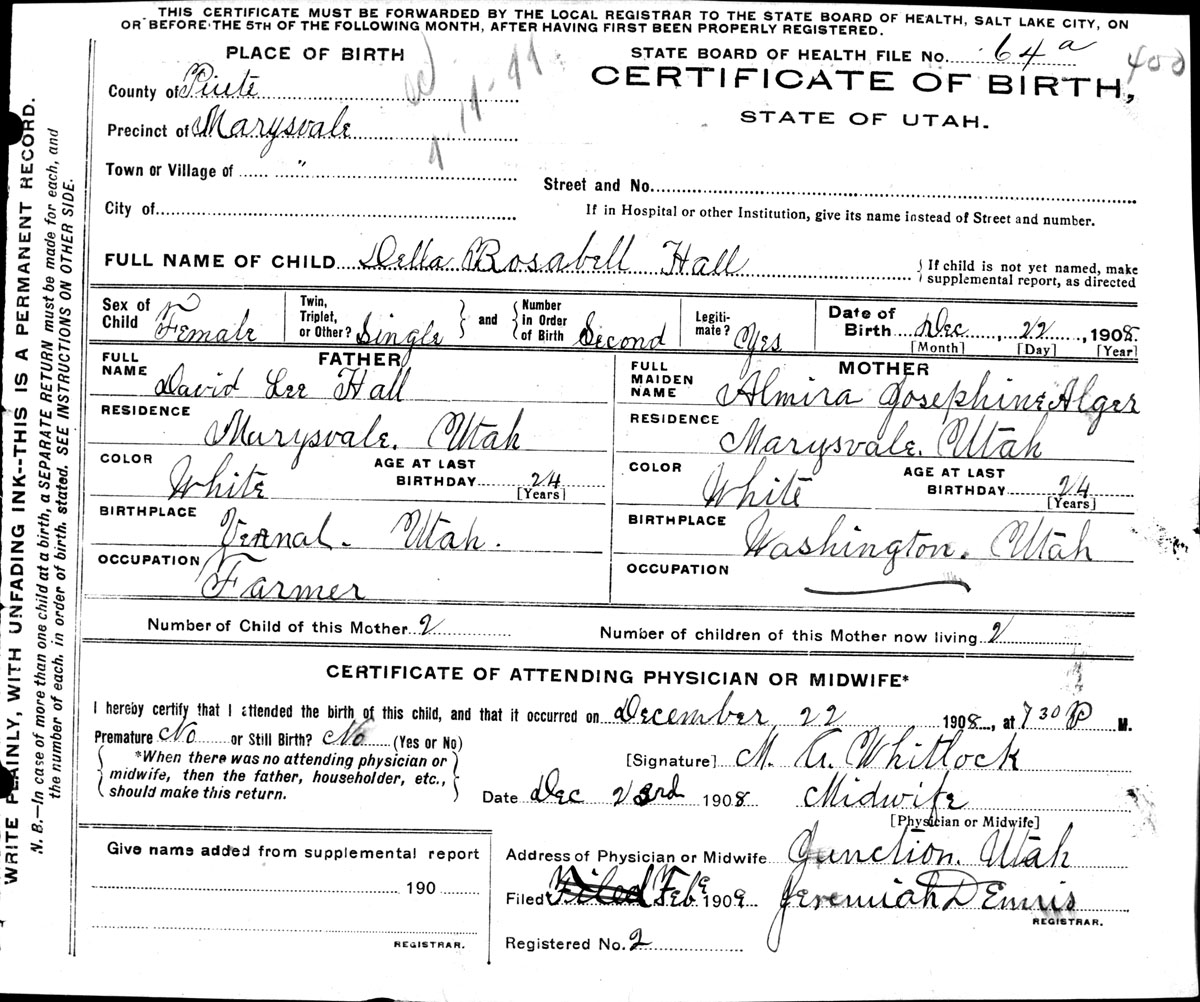 THIS CERTIFICATE MUST BE FORWARDED BY THE LOCAL REGISTRAR TO THE STATE BOARD OF HEALTH, SALT LAKE CITY, ON
OR BEFORE THE 5TH OF THE FOLLOWING MONTH, AFTER HAVING FIRST BEEN PROPERLY REGISTERED.
WRITE PLAINLY, WITH UNFADING INK--THIS IS A PERMANENT RECORD.
N. B.—In case of more than one child at a birth, a SEPARATE RETURN must be made for each, and
the number of each, in order of birth, stated. SEE INSTRUCTIONS ON OTHER SIDE.
PLACE OF BIRTH
County of Piute
Precinct of Marysvale
Town or Village of "
City of
STATE BOARD OF HEALTH FILE No. 64a
400
CERTIFICATE OF BIRTH,
STATE OF UTAH.
Street and No.
If in Hospital or other Institution, give its name instead of Street and number.
FULL NAME OF CHILD Della Rosabell Hall
If child is not yet named, make
supplemental report, as directed
Sex of Child Female
Twin, Triplet, or Other? Single
and
Number in Order of Birth Second
Legiti-mate? Yes
Date of Birth Dec, 22, 1908
[Month] [Day] [Year]
FATHER
FULL NAME David Lee Hall
RESIDENCE Marysvale. Utah
COLOR White
AGE AT LAST BIRTHDAY 24
[Years]
BIRTHPLACE Vernal. Utah.
OCCUPATION Farmer
MOTHER
FULL MAIDEN NAME Almira Josephine Alger
RESIDENCE Marysvale. Utah
COLOR White
AGE AT LAST BIRTHDAY 24
[Years]
BIRTHPLACE Washington. Utah
OCCUPATION
Number of Child of this Mother 2
Number of children of this Mother now living 2
CERTIFICATE OF ATTENDING PHYSICIAN OR MIDWIFE*
I hereby certify that I attended the birth of this child, and that it occurred on December 22 1908, at 7 30 P M.
Premature No or Still Birth? No (Yes or No)
*When there was no attending physician or
midwife, then the father, householder, etc.,
should make this return.
[Signature] M. A. Whitlock
Date Dec 23rd 1908 Midwife
[Physician or Midwife]
Give name added from supplemental report
190
REGISTRAR.
Address of Physician or Midwife Junction. Utah
Filed Feb 9 1909 Jeremiah D Ennis
REGISTRAR.
Registered No. 2